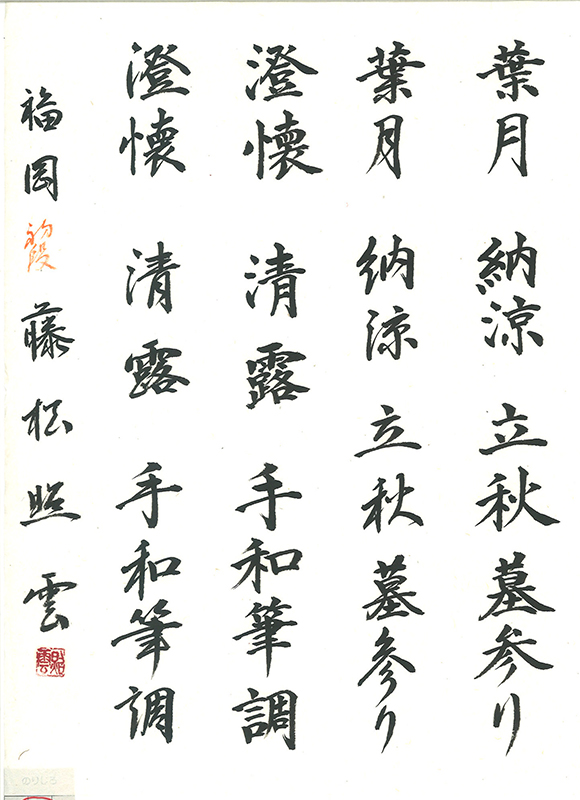 葉月 納涼 立秋 墓参り
葉月 納涼 立秋 墓参り
澄懐 清露 手和筆調
澄懐 清露 手和筆調
福岡 初段 藤松照雲
照雲
のりしろ